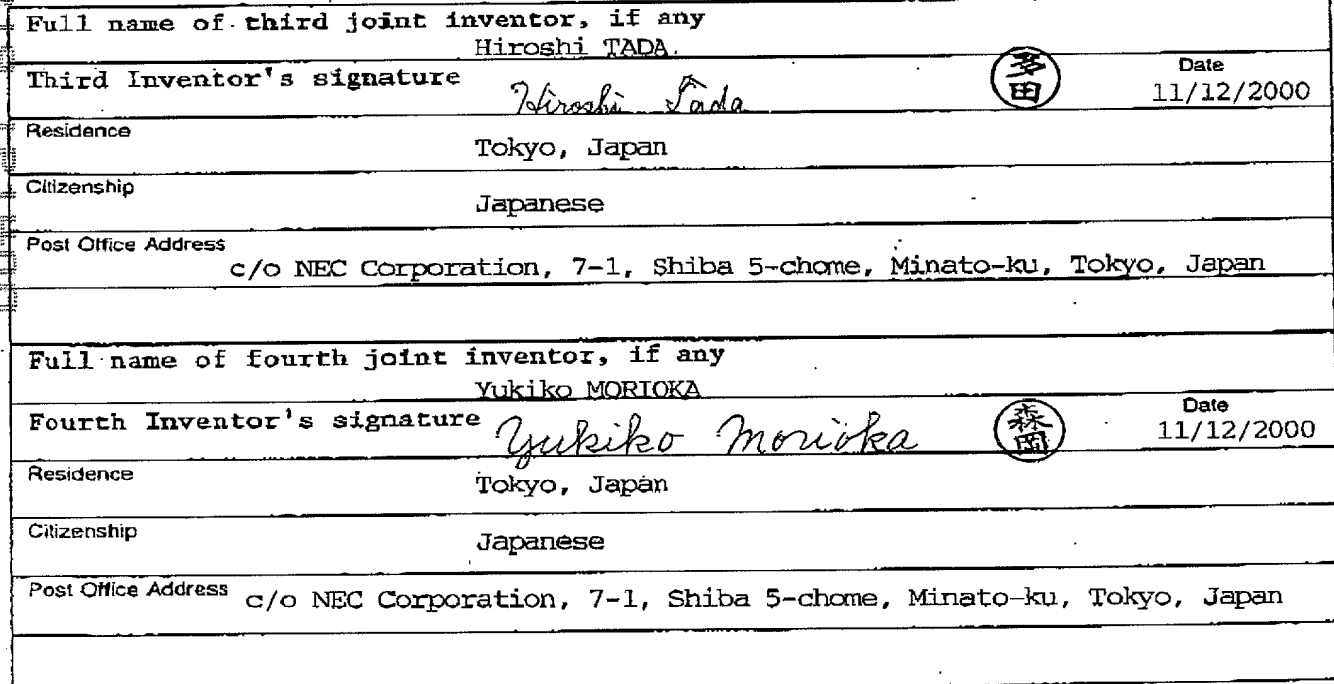 Full name of third joint inventor, if any
Hiroshi TADA.
Third Inventor's signature Hiroshi Tada 多田 Date
11/12/2000
Residence
Tokyo, Japan
Citizenship
Japanese
Post Office Address
c/o NEC Corporation, 7-1, Shiba 5-chome, Minato-ku, Tokyo, Japan
Full name of fourth joint inventor, if any
Yukiko MORIOKA
Fourth Inventor's signature Yukiko Morioka 森岡 Date
11/12/2000
Residence
Tokyo, Japan
Citizenship
Japanese
Post Office Address c/o NEC Corporation, 7-1, Shiba 5-chome, Minato-ku, Tokyo, Japan